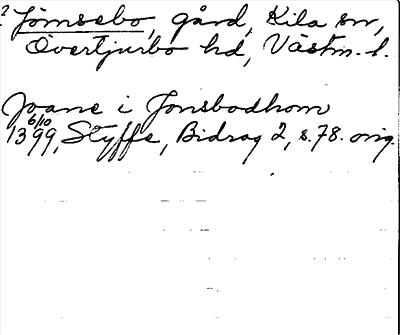 2 Jömsebo, gård, Kila sn,
Övertjurbo hd, Västm. l.
Joane i Jonsbodhom
6/10
1399, Styffe, Bidrag 2, s. 78. orig.